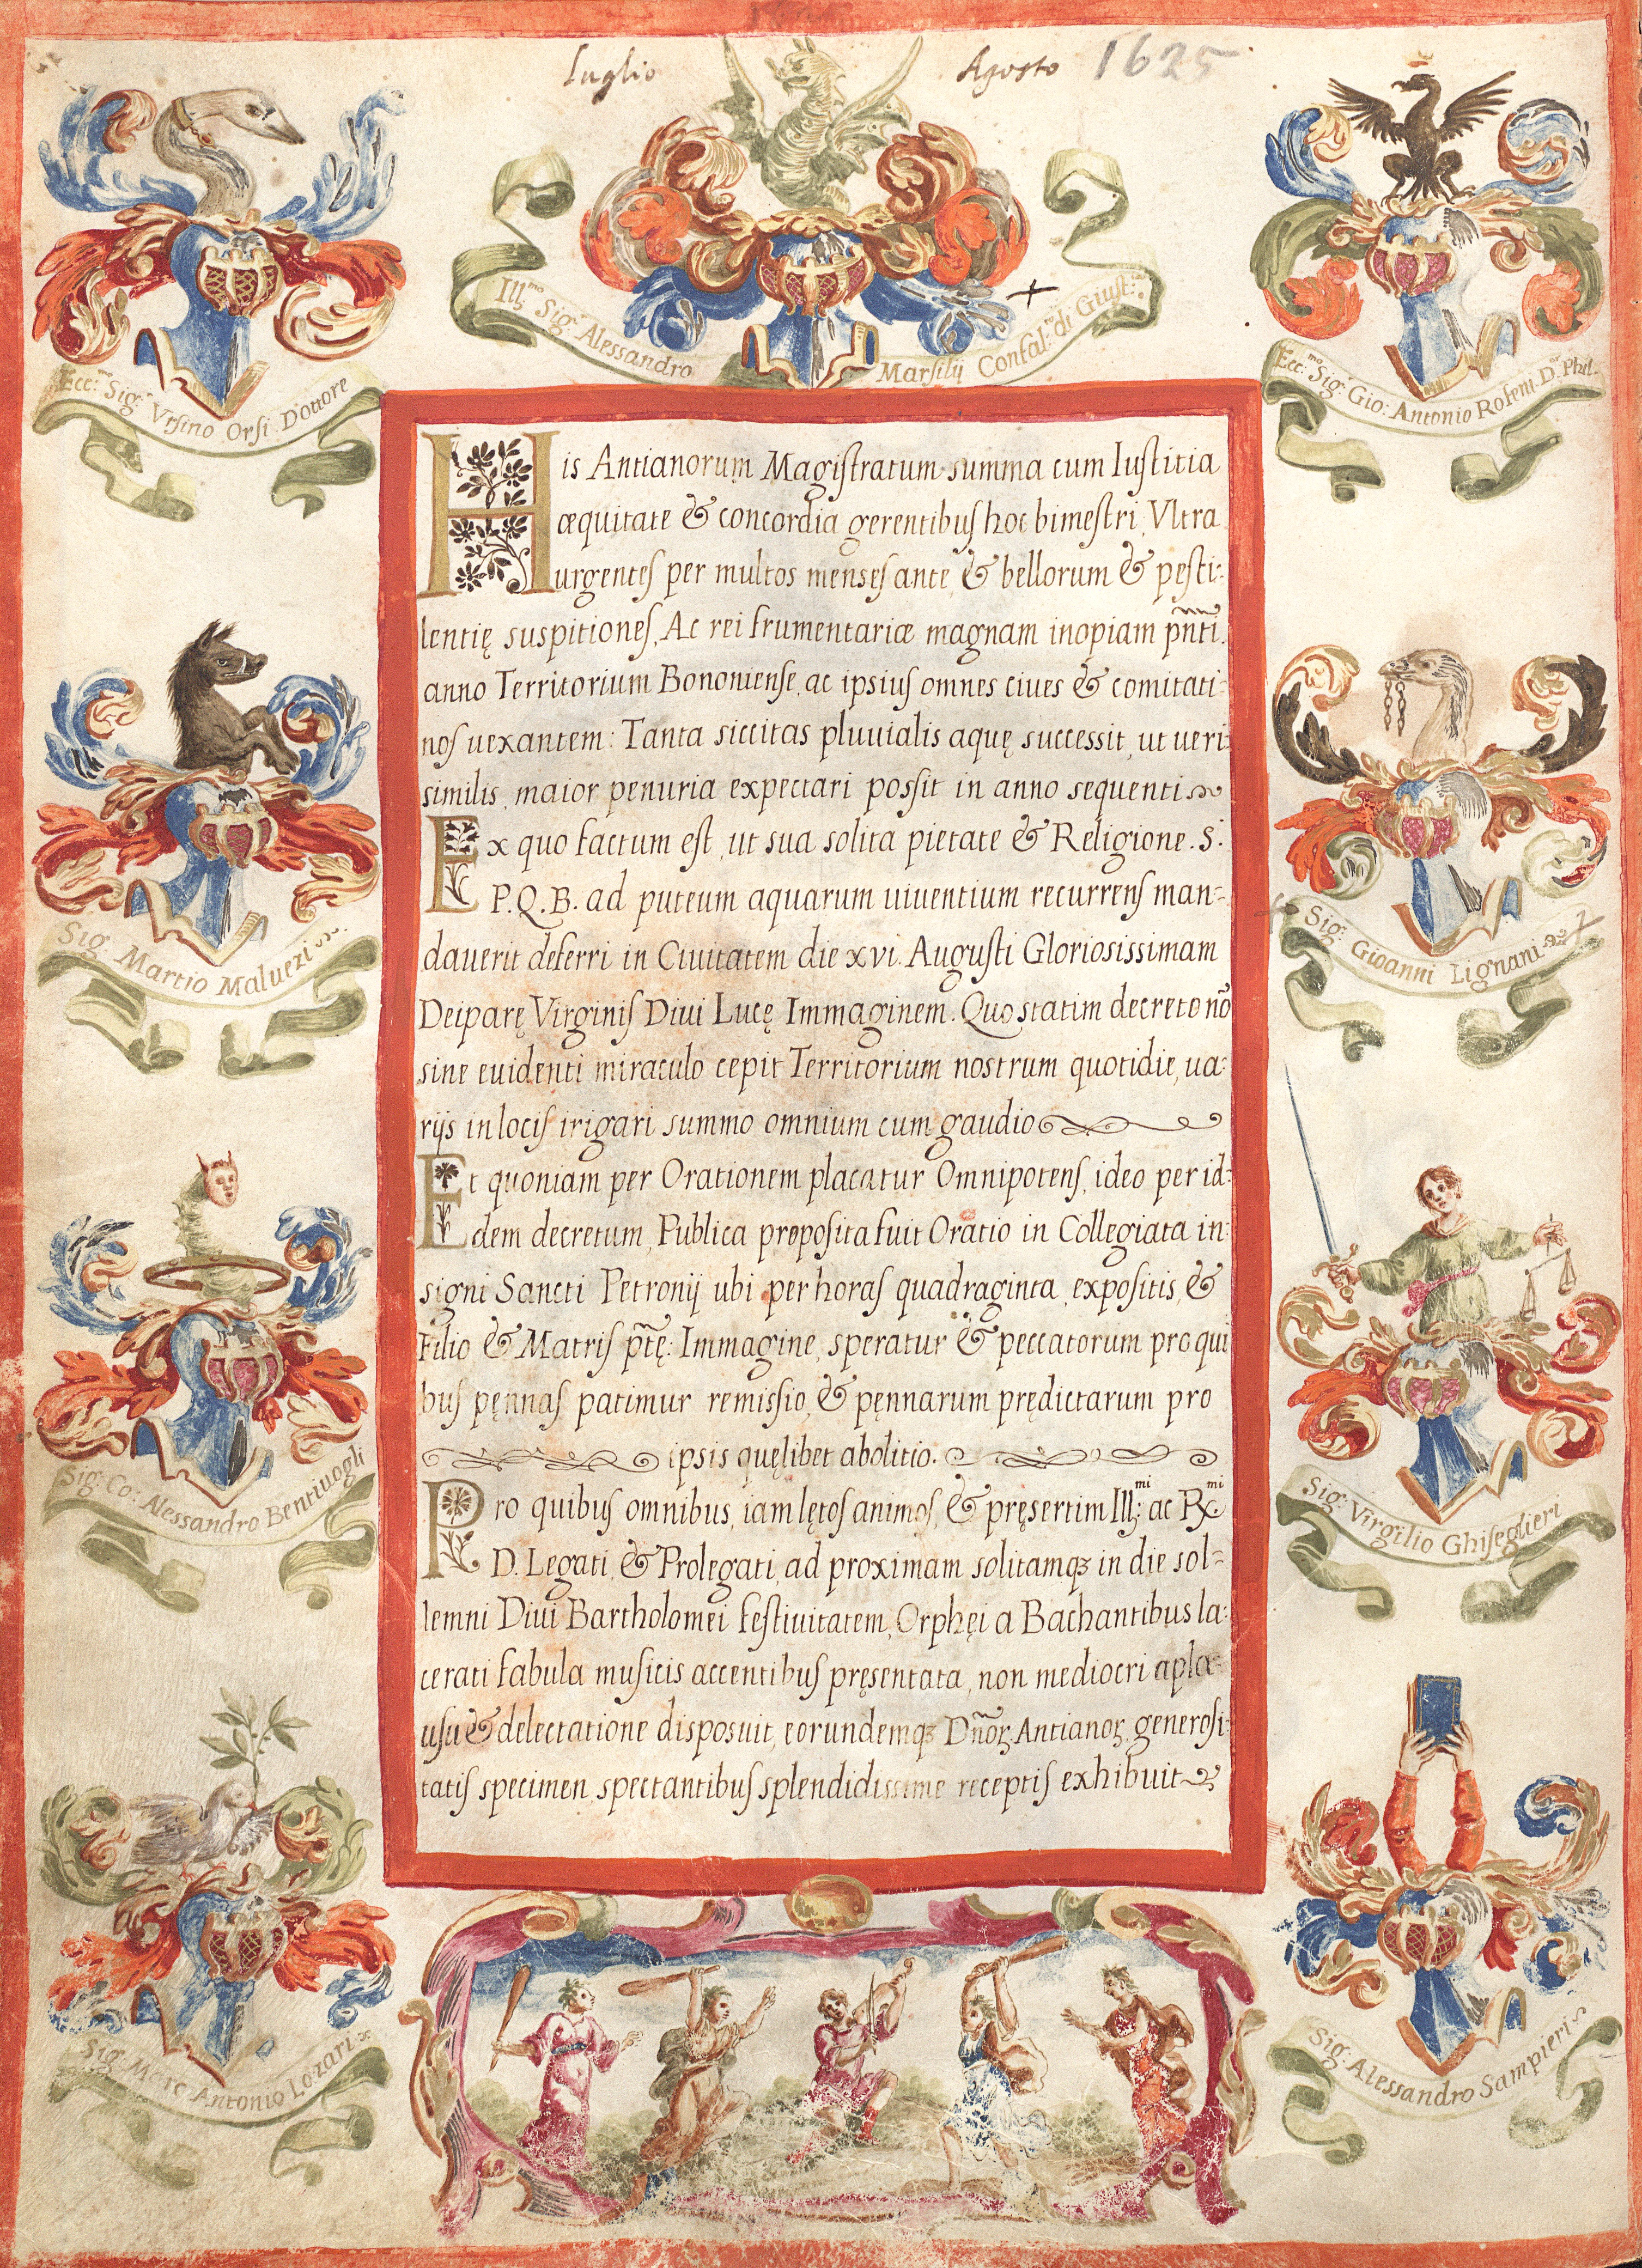 Luglio Agosto 1625
Ill:mo Sig:r Alessandro Marsilij Confal:re di Giust:a
Ecc:mo Sig:r Vrsino Orsi Dottore
Ecc:mo Sig:r Gio: Antonio Rofeni D:r Phil.
His Antianorum Magiſtratum summa cum Iuſtitia
æquitate & concordia gerentibuſ hoc bimeſtri, Vltra
urgenteſ per multos menseſ ante & bellorum & peſti:
lentię suspitioneſ, Ac rei frumentariæ magnam inopiam pñti
anno Territorium Bononienſe, ac ipsiuſ omnes ciues & comitati:
noſ uexantem: Tanta siccitas pluuialis aquę successit, ut ueri:
similis, maior penuria expectari poſsit in anno sequenti
Ex quo factum eſt, ut sua solita pietate & Religione. S:
P.Q.B. ad puteum aquarum uiuentium recurrenſ man:
dauerit deferri in Ciuitatem die xvi. Auguſti Glorioſissimam
Deiparę Virginiſ Diui Lucę Immaginem. Quo statim decreto nõ
sine euidenti miraculo cepit Territorium nostrum quotidie, ua:
rijs in lociſ irigari summo omnium cum gaudio
Et quoniam per Orationem placatur Omnipotenſ, ideo per id:
dem decretum, Publica propoſita fuit Oratio in Collegiata in:
signi Sancti Petronij ubi per horaſ quadraginta, expoſitis, &
Filio & Matriſ ptę: Immagine, speratur & peccatorum pro qui
buſ pęnnaſ patimur remiſsio, & pęnnarum prędictarum pro
ipsis quęlibet abolitio.
Pro quibuſ omnibus, iam lętoſ animoſ, & pręsertim Ill:mi ac R:mi
D. Legati, & Prolegati, ad proximam solitamq; in die sol:
lemni Diui Bartholomei feſtiuitatem, Orphęi a Bachantibus la:
cerati fabula musicis accentibuſ pręsentata, non mediocri apla:
uſu & delectatione disposuit, eorundemq; Dñoꝝ Antianoꝝ generoſi:
tatiſ specimen, spectantibuſ splendidissime receptiſ exhibuit
Sig: Martio Maluezi
Sig:r Gioanni Lignani
Sig: Co: Alessandro Bentiuogli
Sig: Virgilio Ghiſeglieri
Sig: Marc Antonio Lozari
Sig: Alessandro Sampieri